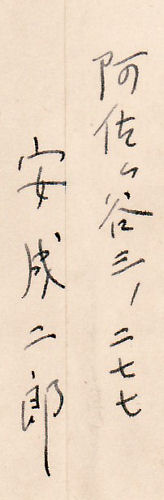 阿佐ヶ谷三ノ二七七
安成二郎